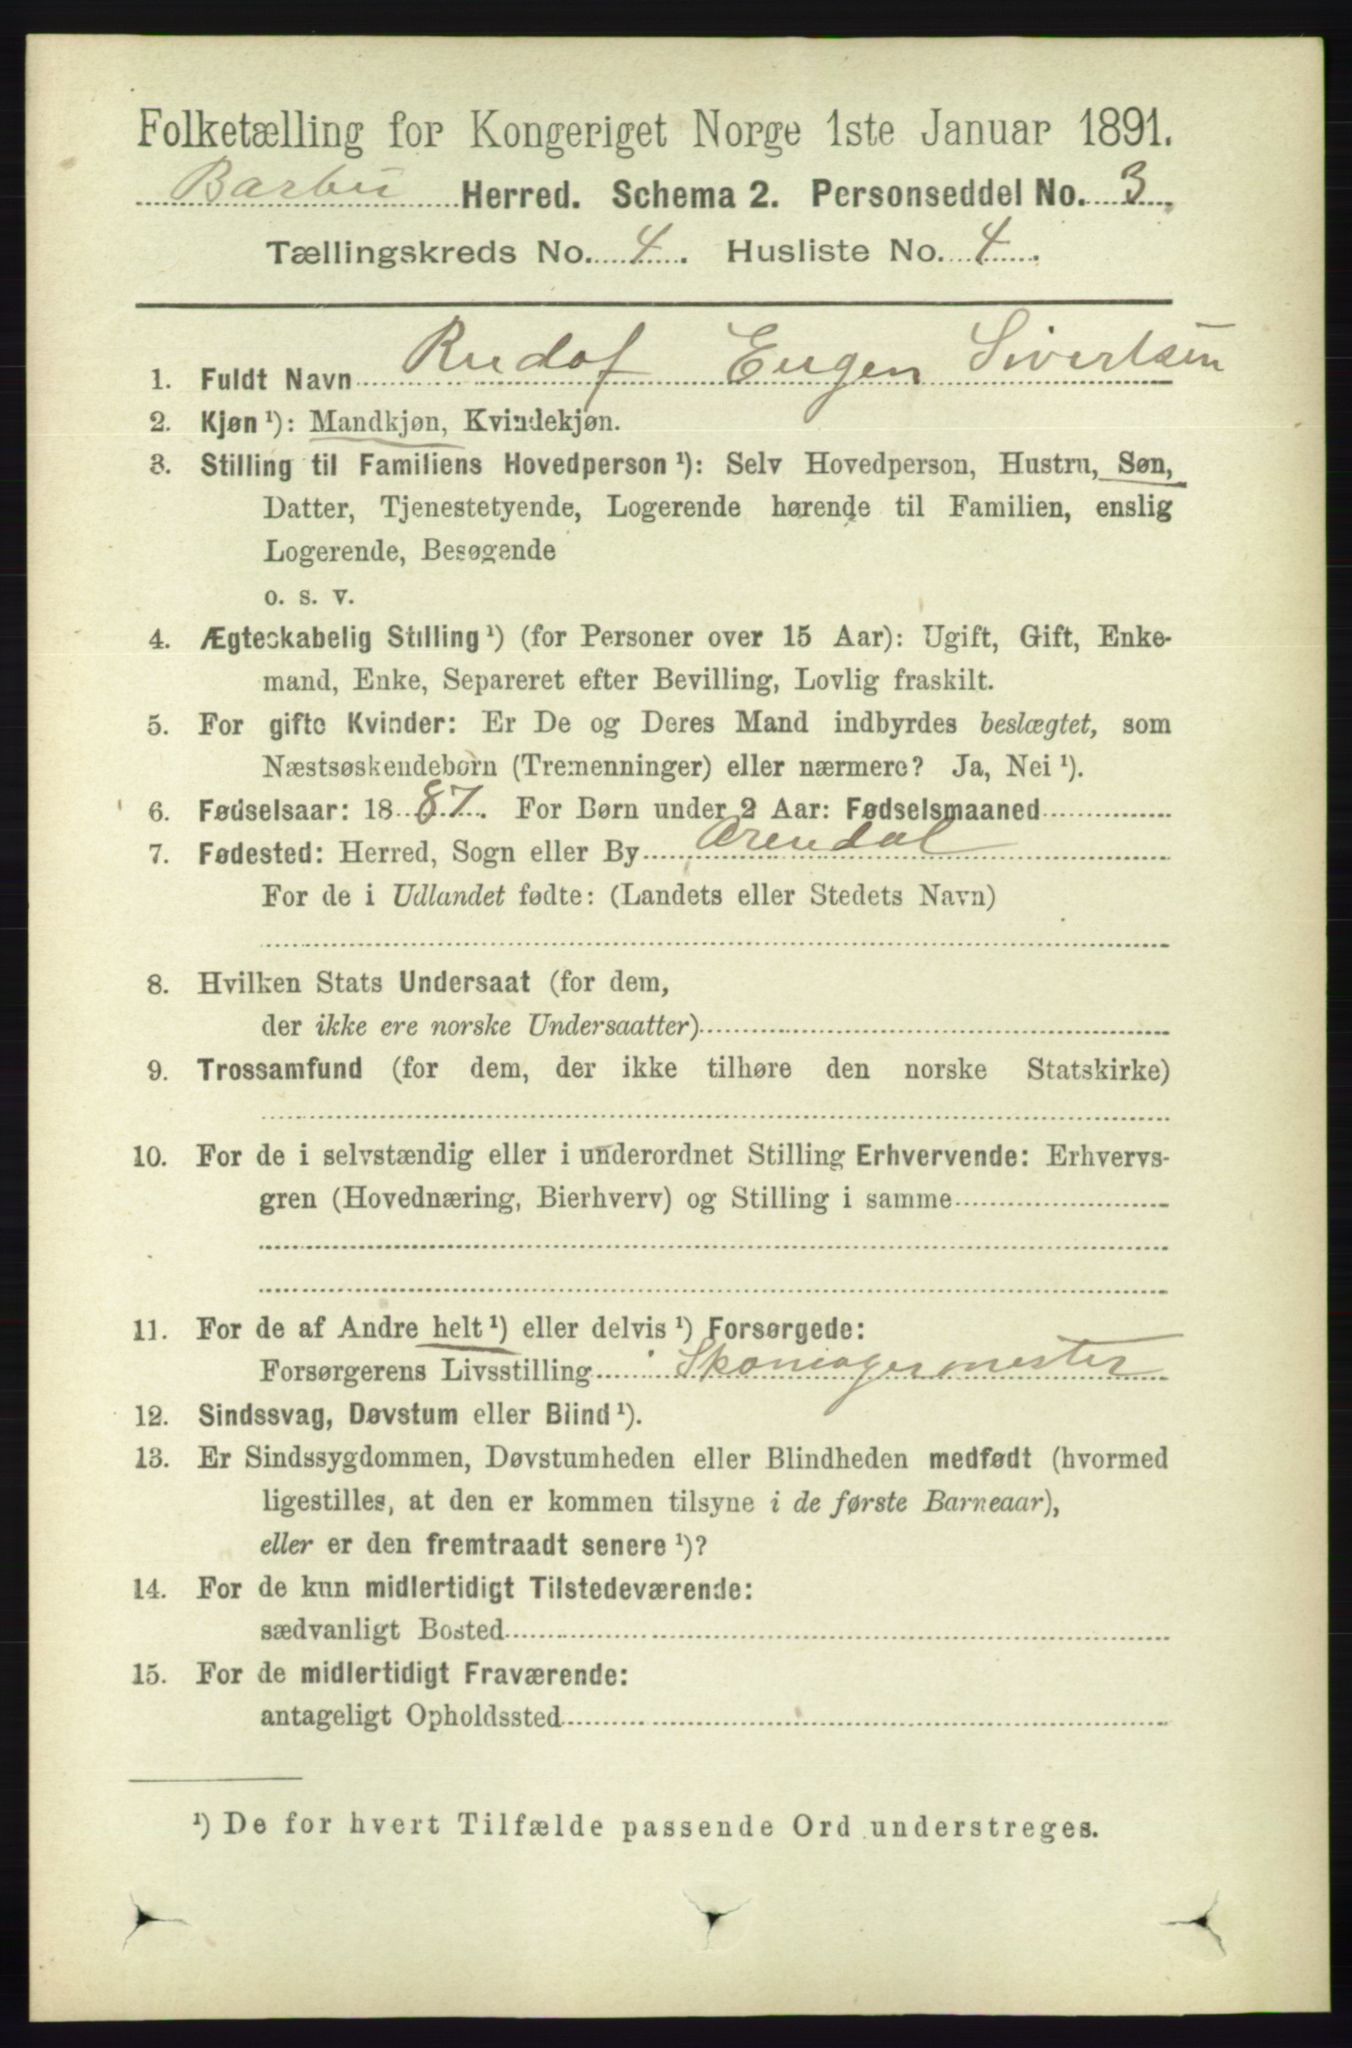 Folketælling for Kongeriget Norge 1ste Januar 1891.
Barbu Herred. Schema 2. Personseddel No. 3
Tællingskreds No. 4. Husliste No. 4.
1. Fuldt Navn Rudof Eugen Sivertsen
2. Kjøn ¹): Mandkjøn, Kvindekjøn.
3. Stilling til Familiens Hovedperson ¹): Selv Hovedperson, Hustru, Søn,
Datter, Tjenestetyende, Logerende hørende til Familien, enslig
Logerende, Besøgende
o. s. v.
4. Ægteskabelig Stilling ¹) (for Personer over 15 Aar): Ugift, Gift, Enke-
mand, Enke, Separeret efter Bevilling, Lovlig fraskilt.
5. For gifte Kvinder: Er De og Deres Mand indbyrdes beslægtet, som
Næstsøskendebørn (Tremenninger) eller nærmere? Ja, Nei ¹).
6. Fødselsaar: 1887. For Børn under 2 Aar: Fødselsmaaned
7. Fødested: Herred, Sogn eller By Arendal
For de i Udlandet fødte: (Landets eller Stedets Navn)
8. Hvilken Stats Undersaat (for dem,
der ikke ere norske Undersaatter)
9. Trossamfund (for dem, der ikke tilhøre den norske Statskirke)
10. For de i selvstændig eller i underordnet Stilling Erhvervende: Erhvervs-
gren (Hovednæring, Bierhverv) og Stilling i samme
11. For de af Andre helt ¹) eller delvis ¹) Forsørgede:
Forsørgerens Livsstilling Skomagermester
12. Sindssvag, Døvstum eller Blind ¹).
13. Er Sindssygdommen, Døvstumheden eller Blindheden medfødt (hvormed
ligestilles, at den er kommen tilsyne i de første Barneaar),
eller er den fremtraadt senere ¹)?
14. For de kun midlertidigt Tilstedeværende:
sædvanligt Bosted
15. For de midlertidigt Fraværende:
antageligt Opholdssted
¹) De for hvert Tilfælde passende Ord understreges.